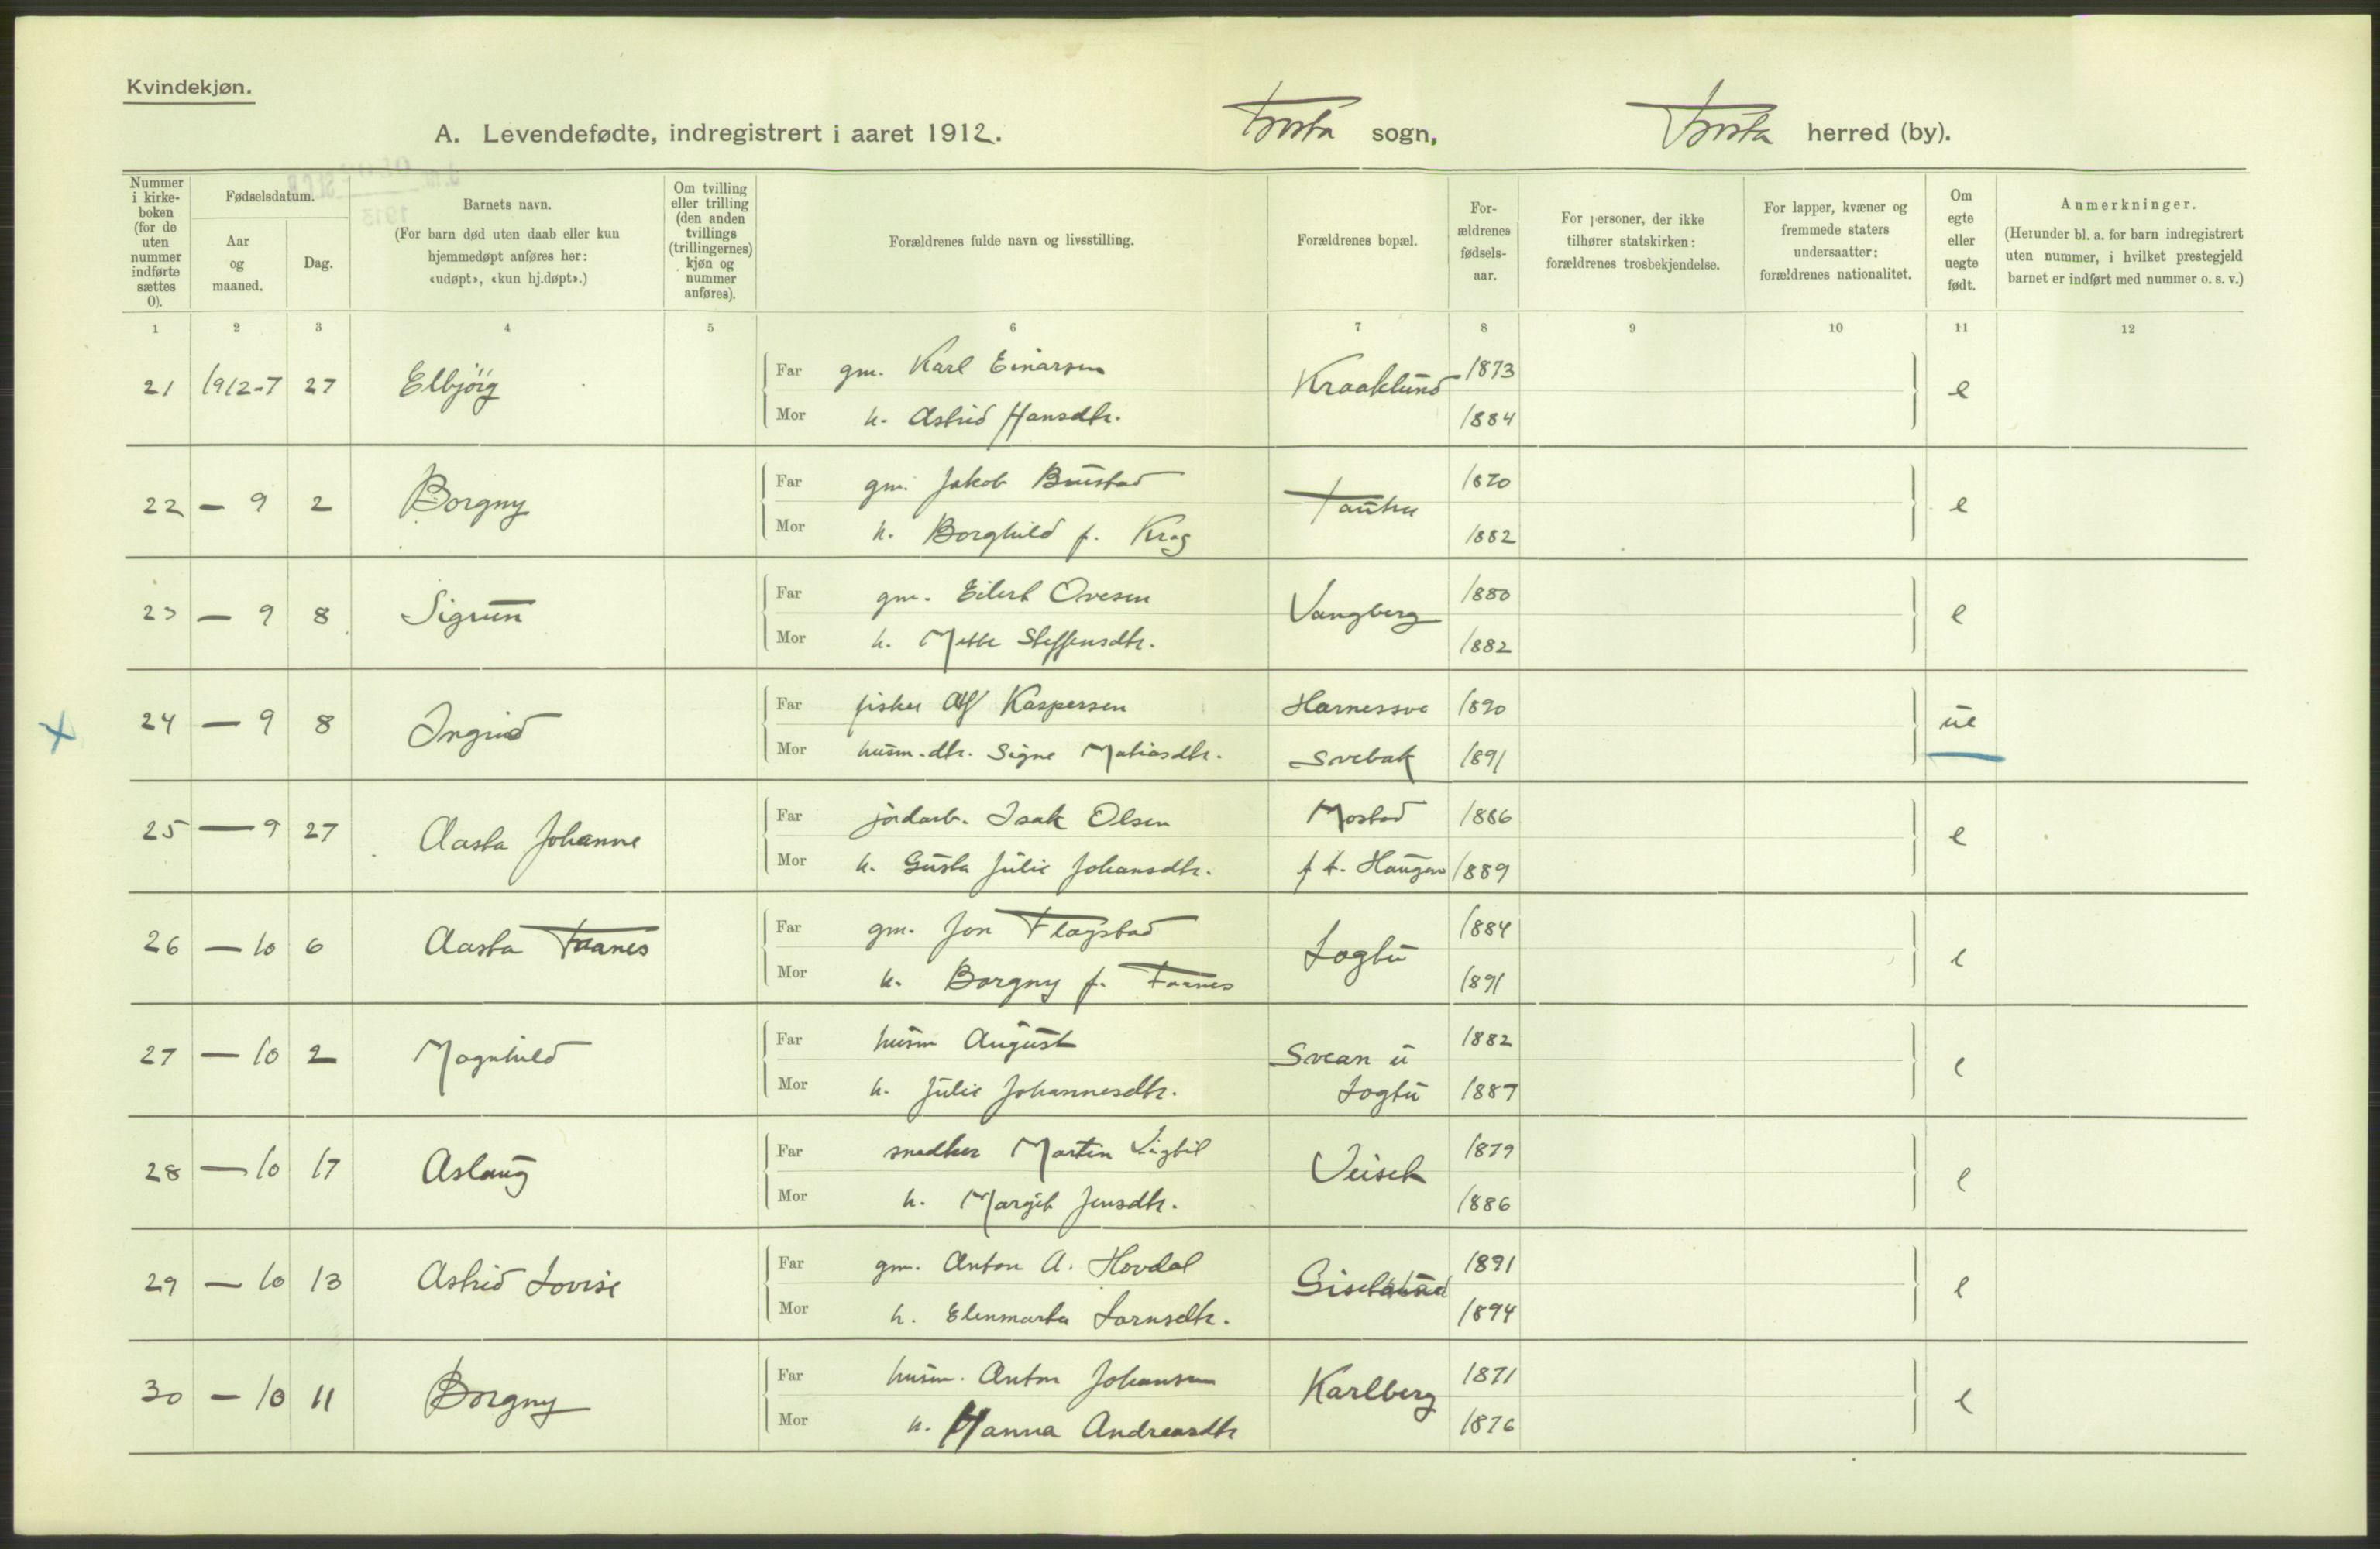 Kvindekjøn.
A. Levendefødte, indregistrert i aaret 1912. Frosta sogn, Frosta herred (by).
Nummer i kirke-boken (for de uten nummer indførte sættes 0).
Fødselsdatum.
Aar og maaned.
Dag.
Barnets navn.
(For barn død uten daab eller kun hjemmedøpt anføres her: «udøpt», «kun hj.døpt».)
Om tvilling eller trilling (den anden tvillings (trillingernes) kjøn og nummer anføres).
Forældrenes fulde navn og livsstilling.
Forældrenes bopæl.
For-ældrenes fødsels-aar.
For personer, der ikke tilhører statskirken: forældrenes trosbekjendelse.
For lapper, kvæner og fremmede staters undersaatter: forældrenes nationalitet.
Om egte eller uegte født.
Anmerkninger.
(Herunder bl. a. for barn indregistrert uten nummer, i hvilket prestegjeld barnet er indført med nummer o. s. v.)
1 2 3 4 5 6 7 8 9 10 11 12
21 1912-7 27 Elbjörg Far gm. Karl Einarsen Kraaklund 1873 e
Mor h. Astrid Hansdtr. 1884
22 — 9 2 Borgny Far gm. Jakob Bustad 1870 e
Mor h. Borghild f. Krog 1882
23 — 9 8 Sigrun Far gm. Eilert Ovesen Vangberg 1880 e
Mor h. Mette Steffensdtr. 1882
x 24 — 9 8 Ingrid Far fisker Alf Kaspersen 1890 ue
Mor husm.dtr. Signe Matiasdtr. Svebak 1891
25 — 9 27 Aasta Johanne Far jordarb. Isak Olsen Mostad 1886 e
Mor h. Gusta Julie Johansdtr. f t. Haugan 1889
26 — 10 6 Aasta Faanes Far gm. Jon Flagstad Logtu 1884 e
Mor h. Borgny f. Faanes 1891
27 — 10 2 Magnhild Far husm August Svean u 1882 e
Mor h. Julie Johannesdtr. Logtu 1887
28 — 10 17 Aslaug Far snedker Martin Vigtil 1879 e
Mor h. Margit Jensdtr. 1886
29 — 10 13 Astrid Lovise Far gm. Anton A. Hovdal 1891 e
Mor h. Elenmarta Larnsdtr. 1894
30 — 10 11 Borgny Far husm. Anton Johansen Karlberg 1871 e
Mor h. Hanna Andreasdtr 1876